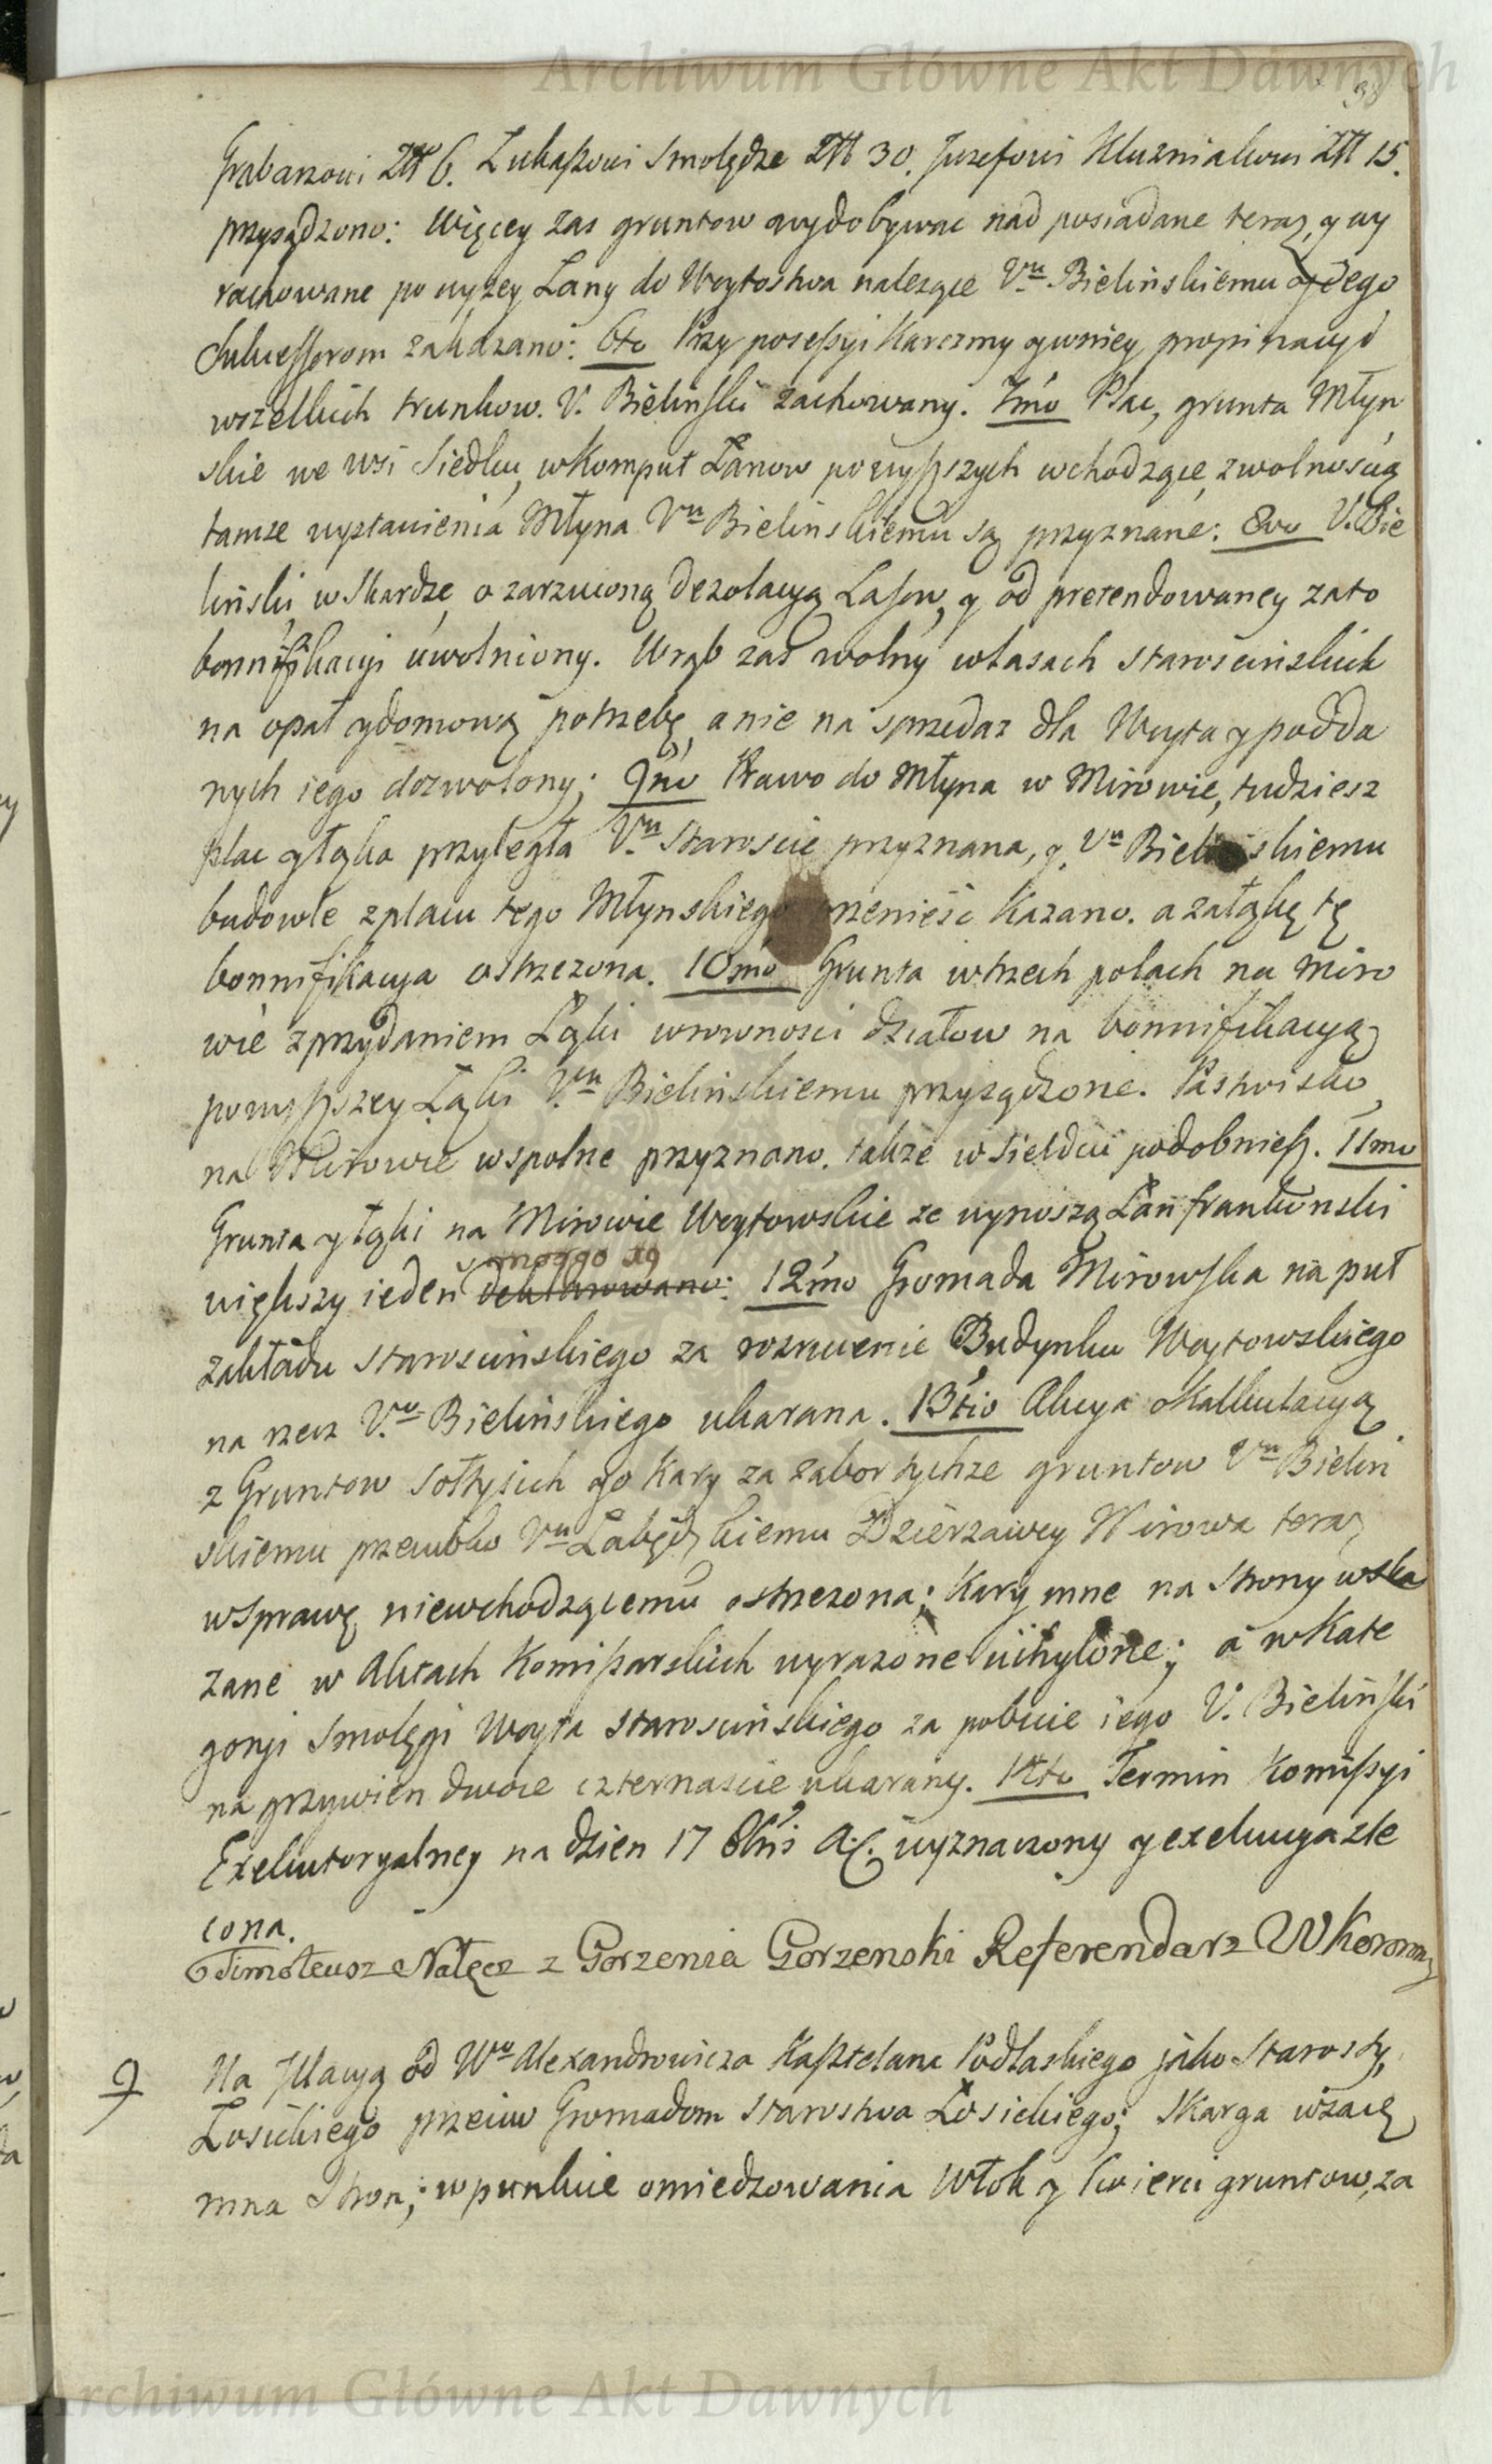 Archiwum Główne Akt Dawnych
38
Grabarzowi Złł 6. Łukaszowi Smolędze Złł 30. Jozefowi Kluzniakowi Złł 15.
przysądzono: Więcey zas gruntow wydobywac nad posiadane teraz, y wy
rachowane powyzey Łany do Woytostwa nalezące Vn Bielinskiemu y Jego
Sukcessorom zakazano: 6to Przy possessyi Karczmy y wniey propinacyi
wszelkich trunkow. V. Bielinski zachowany. 7mo Plac, grunta Młyn
skie we wsi Siedlcu, w Komput Łanow powyszszych wchodzące, zwolnoscią
tamze wystawienia Młyna Vn Bielinskiemu są przyznane: 8vo V. Bie
linski, w Skardze o zarzuconą dezolacyą Lasow, y od pretendowaney zato
bonnifikacyi uwolniony. Wrąb zas wolny w lasach Staroscinskich
na opał y domową potrzebę, a nie na sprzedaz dla Woyta y podda
nych iego dozwolony; 9no Prawo do Młyna w Mirowie, tudziesz
plac y łąka przyległa Vn Staroscie przyznana, y Vn Bielinskiemu
budowle z placu tego Młynskiego przenieść kazano. a załąkę tę
bonnifikacya ostrzezona. 10mo Grunta w trzech polach na Miro
wie z przydaniem Łąki w rownosci działow na bonnifikacyą
powyszszey Łąki Vn Bielinskiemu przysądzone. Pastwisko
na Mirowie wspolne przyznano. także w Sieldcu podobniesz. 11mo
Grunta y łąki na Mirowie Woytowskie ze wynoszą Łan frankonski
większy ieden deklarowano: 12mo Gromada Mirowska na puł
zakładu Staroscinskiego za rozrucenie Budynku Woytowskiego
na rzecz Vo Bielinskiego ukarana. 13tio Akcya o Kalkulacyą
z Gruntow Sołtysich y o Kary za zabor tychze gruntow Vn Bielin
skiemu przeciwko Vn Łabędzkiemu Dzierzawcy Mirowa teraz
w sprawę niewchodzącemu ostrzezona; Kary inne na Strony wska
zane w Aktach Komissarskich wyrazone uchylone; a w Kate
goryi Smolęgi Woyta Staroscinskiego za pobicie iego V. Bielinski
na grzywien dwoie czternascie ukarany. 14to Termin Komissyi
Exekutoryalney na dzien 17 8bris A.C. wyznaczony y exekucya zle
cona.
Timoteusz Nałęcz z Gorzenia Gorzenski Referendarz W Koronny
9 Na Illacyą od Wo Alexandrowicza Kasztelana Podlaskiego jako Starosty
Łosickiego przeciw Gromadom Starostwa Łosickiego; Skarga wzaię
mna Stron; w punkcie omiedzowania Włok y kwierci gruntow, za
Archiwum Główne Akt Dawnych